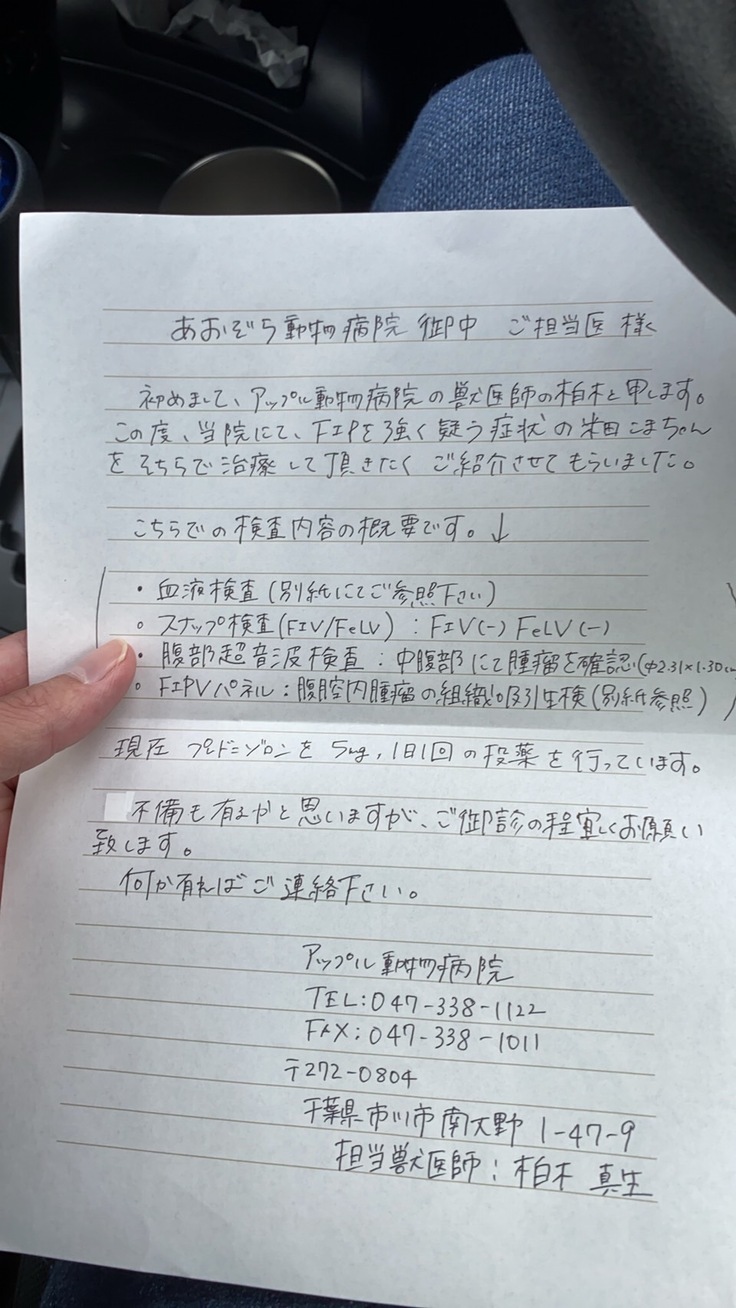 あおぞら動物病院 御中 ご担当医 様
初めまして、アップル動物病院の獣医師の柏木と申します。
この度、当院にて、FIPを強く疑う症状の米田こまちゃん
をそちらで治療して頂きたくご紹介させてもらいました。
こちらでの検査内容の概要です。↓
・血液検査(別紙にてご参照下さい)
・スナップ検査(FIV/FeLV):FIV(-) FeLV(-)
・腹部超音波検査:中腹部にて腫瘤を確認(φ2.31×1.30cm
・FIPVパネル:腹腔内腫瘤の組織吸引生検(別紙参照)
現在 プレドニゾロンを5mg,1日1回の投薬を行っています。
不備も有るかと思いますが、ご御診の程宜しくお願い
致します。
何か有ればご連絡下さい。
アップル動物病院
TEL:047-338-1122
FAX:047-338-1011
〒272-0804
千葉県市川市南大野1-47-9
担当獣医師:柏木 真生